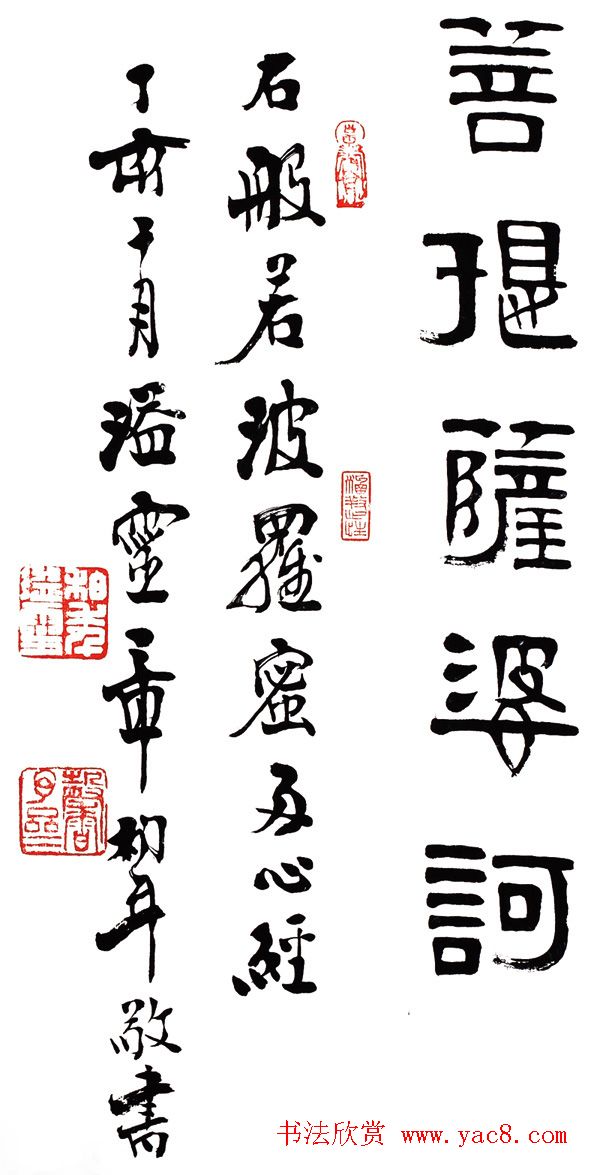 菩提薩婆訶
右般若波羅蜜多心經
丁亥十月靈敬書
书法欣赏 www.yac8.com